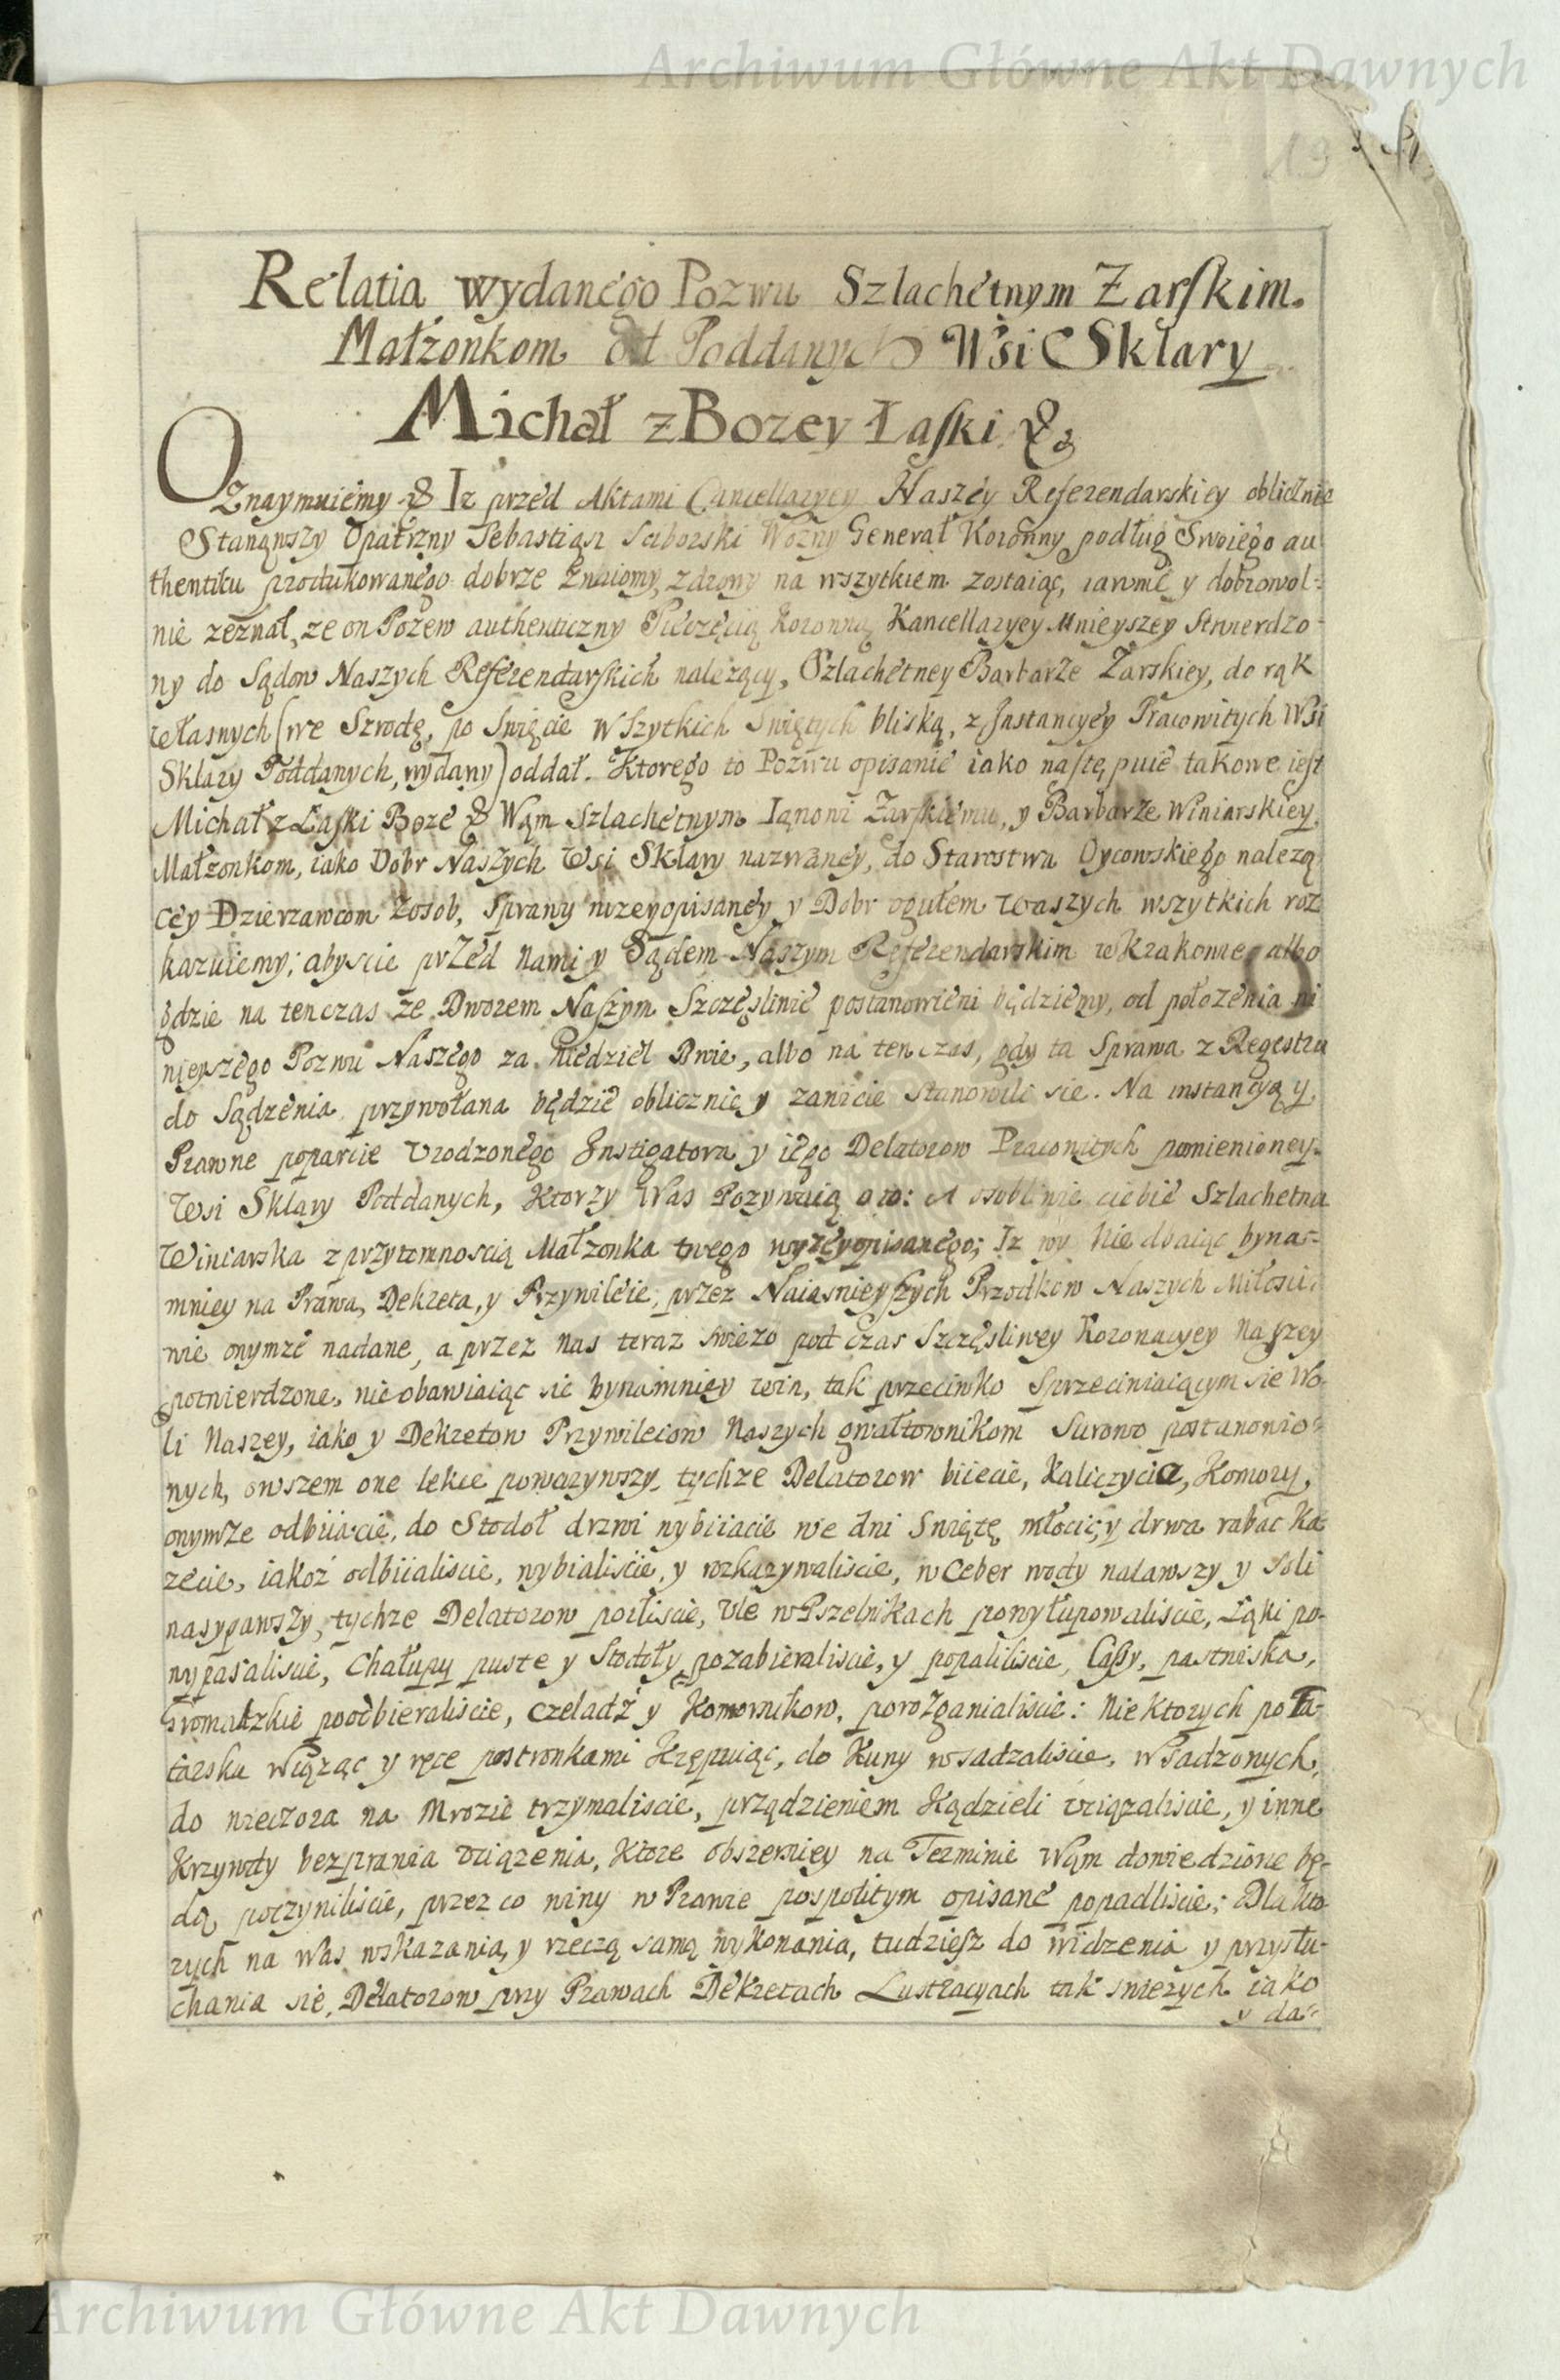 Archiwum Główne Akt Dawnych
19
Relatia wydanego Pozwu Szlachetnym Zarskim.
Małzonkom od Poddanych Wsi Sklary
Michał z Bozey Łaski &
Oznaymuiemy & Iz przed Aktami Cancellaryey Naszey Referendarskiey oblicznie
Stanąwszy Opatrzny Sebastian Sciborski Wozny Generał Koronny podług Swoiego au
thentiku produkowanego dobrze Znaiomy, zdrowy na wszytkiem zostaiąc, iawnie y dobrowol-
nie zeznał, ze on Pozew authenticzny Pieczęcią Koronną Kancellaryey Mnieyszey Stwierdzo-
ny do Sądow Naszych Referendarskich nalezący, Szlachetney Barbarze Zarskiey, do rąk
własnych (we Szrodę, po Swięcie Wszytkich Swiętych bliską, z Instancyey Pracowitych Wsi
Sklary Poddanych, wydany) oddał. Ktorego to Pozwu opisanie iako następuie takowe iest
Michał z Łaski Boze & Wąm Szlachetnym Ianowi Zarskiemu, y Barbarze Winiarskiey,
Małzonkom, iako Dobr Naszych Wsi Sklary nazwaney, do Starostwa Oycowskiego nalezą
cey Dzierzawcom zosob, Sprawy nizeyopisaney y Dobr ogułem Waszych wszytkich roz
kazuiemy; abyscie przed Nami y Sądem Naszym Referendarskim w Krakowie, albo
gdzie na tenczas ze Dworem Naszym Szczęsliwie postanowieni będziemy, od połozenia ni
nieyszego Pozwu Naszego za niedziel Dwie, albo na tenczas, gdy ta Sprawa z Regestru
do Sądzenia przywołana będzie oblicznie y zawicie Stanowili sie. Na instancyą y
Prawne poparcie Urodzonego Instigatora y iego Delatorow Pracowitych pomienioney
Wsi Sklary Poddanych, Ktorzy Was Pozywaią o to: A osobliwie ciebie Szlachetna
Winiarska z przytomnoscią Małzonka twego wyzeyopisanego; Iz wy nie dbaiąc bynay-
mniey na Prawa, Dekreta, y Przywileie, przez Naiasnieyszych Przodkow Naszych Miłosci-
wie onymze nadane, a przez nas teraz swiezo pod czas Szczęsliwey Koronacyey Naszey
potwierdzone, nie obawiaiąc sie bynamniey win, tak przeciwko Sprzeciwiaiącym sie Wo-
li Naszey, iako y Dekretow Przywileiow Naszych gwałtownikom Surowo postanowio-
nych, owszem one lekce powazywszy, tychze Delatorow biiecie, Kaliczycie, Komory,
onymze odbiiacie, do Stodoł drzwi wybiiacie we dni Swięte młocic, y drwa rabac Ka
zecie, iakoz odbiialiscie, wybialiscie, y rozkazywaliscie, w Ceber wody nalawszy y Soli
nasypawszy, tychze Delatorow poiliscie, Ule w Pszelnikach powyłupowaliscie, Łąki po-
wypasaliscie, Chałupy puste y Stodoły pozabieraliscie, y popaliliscie, Lasy, pastwiska,
Gromadzkie poodbieraliscie, czeladz y Komornikow, porozganialiscie: Niektorych po Ta-
tarsku wiąząc y ręce postronkami Krępuiąc, do Kuny wsadzaliscie, Wsadzonych,
do wieczora na Mrozie trzymaliscie, przędzieniem Kądzieli uciązaliscie, y inne
Krzywdy bezprawia uciązenia, Ktore obszerniey na Terminie Wąm dowiedzione bę-
dą poczyniliscie, przez co winy w Prawie pospolitym opisane popadliscie; Dla kto-
rych na Was wskazania, y rzeczą samą wykonania, tudziesz do widzenia y przysłu-
chania sie, Delatorow przy Prawach Dekretach Lustracyach tak swiezych iako
y da-
Archiwum Główne Akt Dawnych